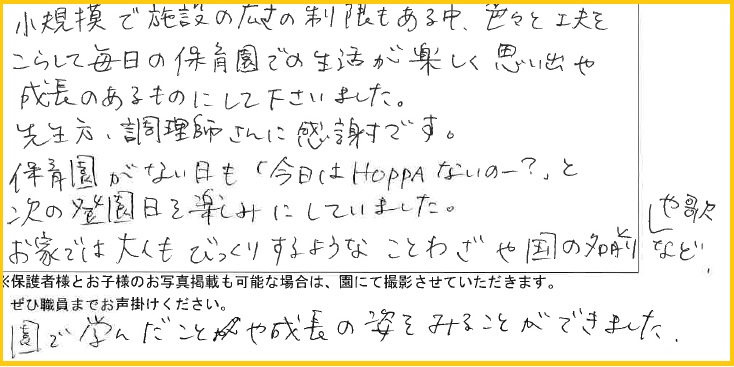 小規模で施設の広さの制限もある中、色々と工夫を
こらして毎日の保育園での生活が楽しく思い出や
成長のあるものにして下さいました。
先生方、調理師さんに感謝です。
保育園がない日も「今日はHOPPAないのー?」と
次の登園日を楽しみにしていました。
お家では大人もびっくりするようなことわざや国の名前
や歌
など、
※保護者様とお子様のお写真掲載も可能な場合は、園にて撮影させていただきます。
ぜひ職員までお声掛けください。
園で学んだことや成長の姿をみることができました。